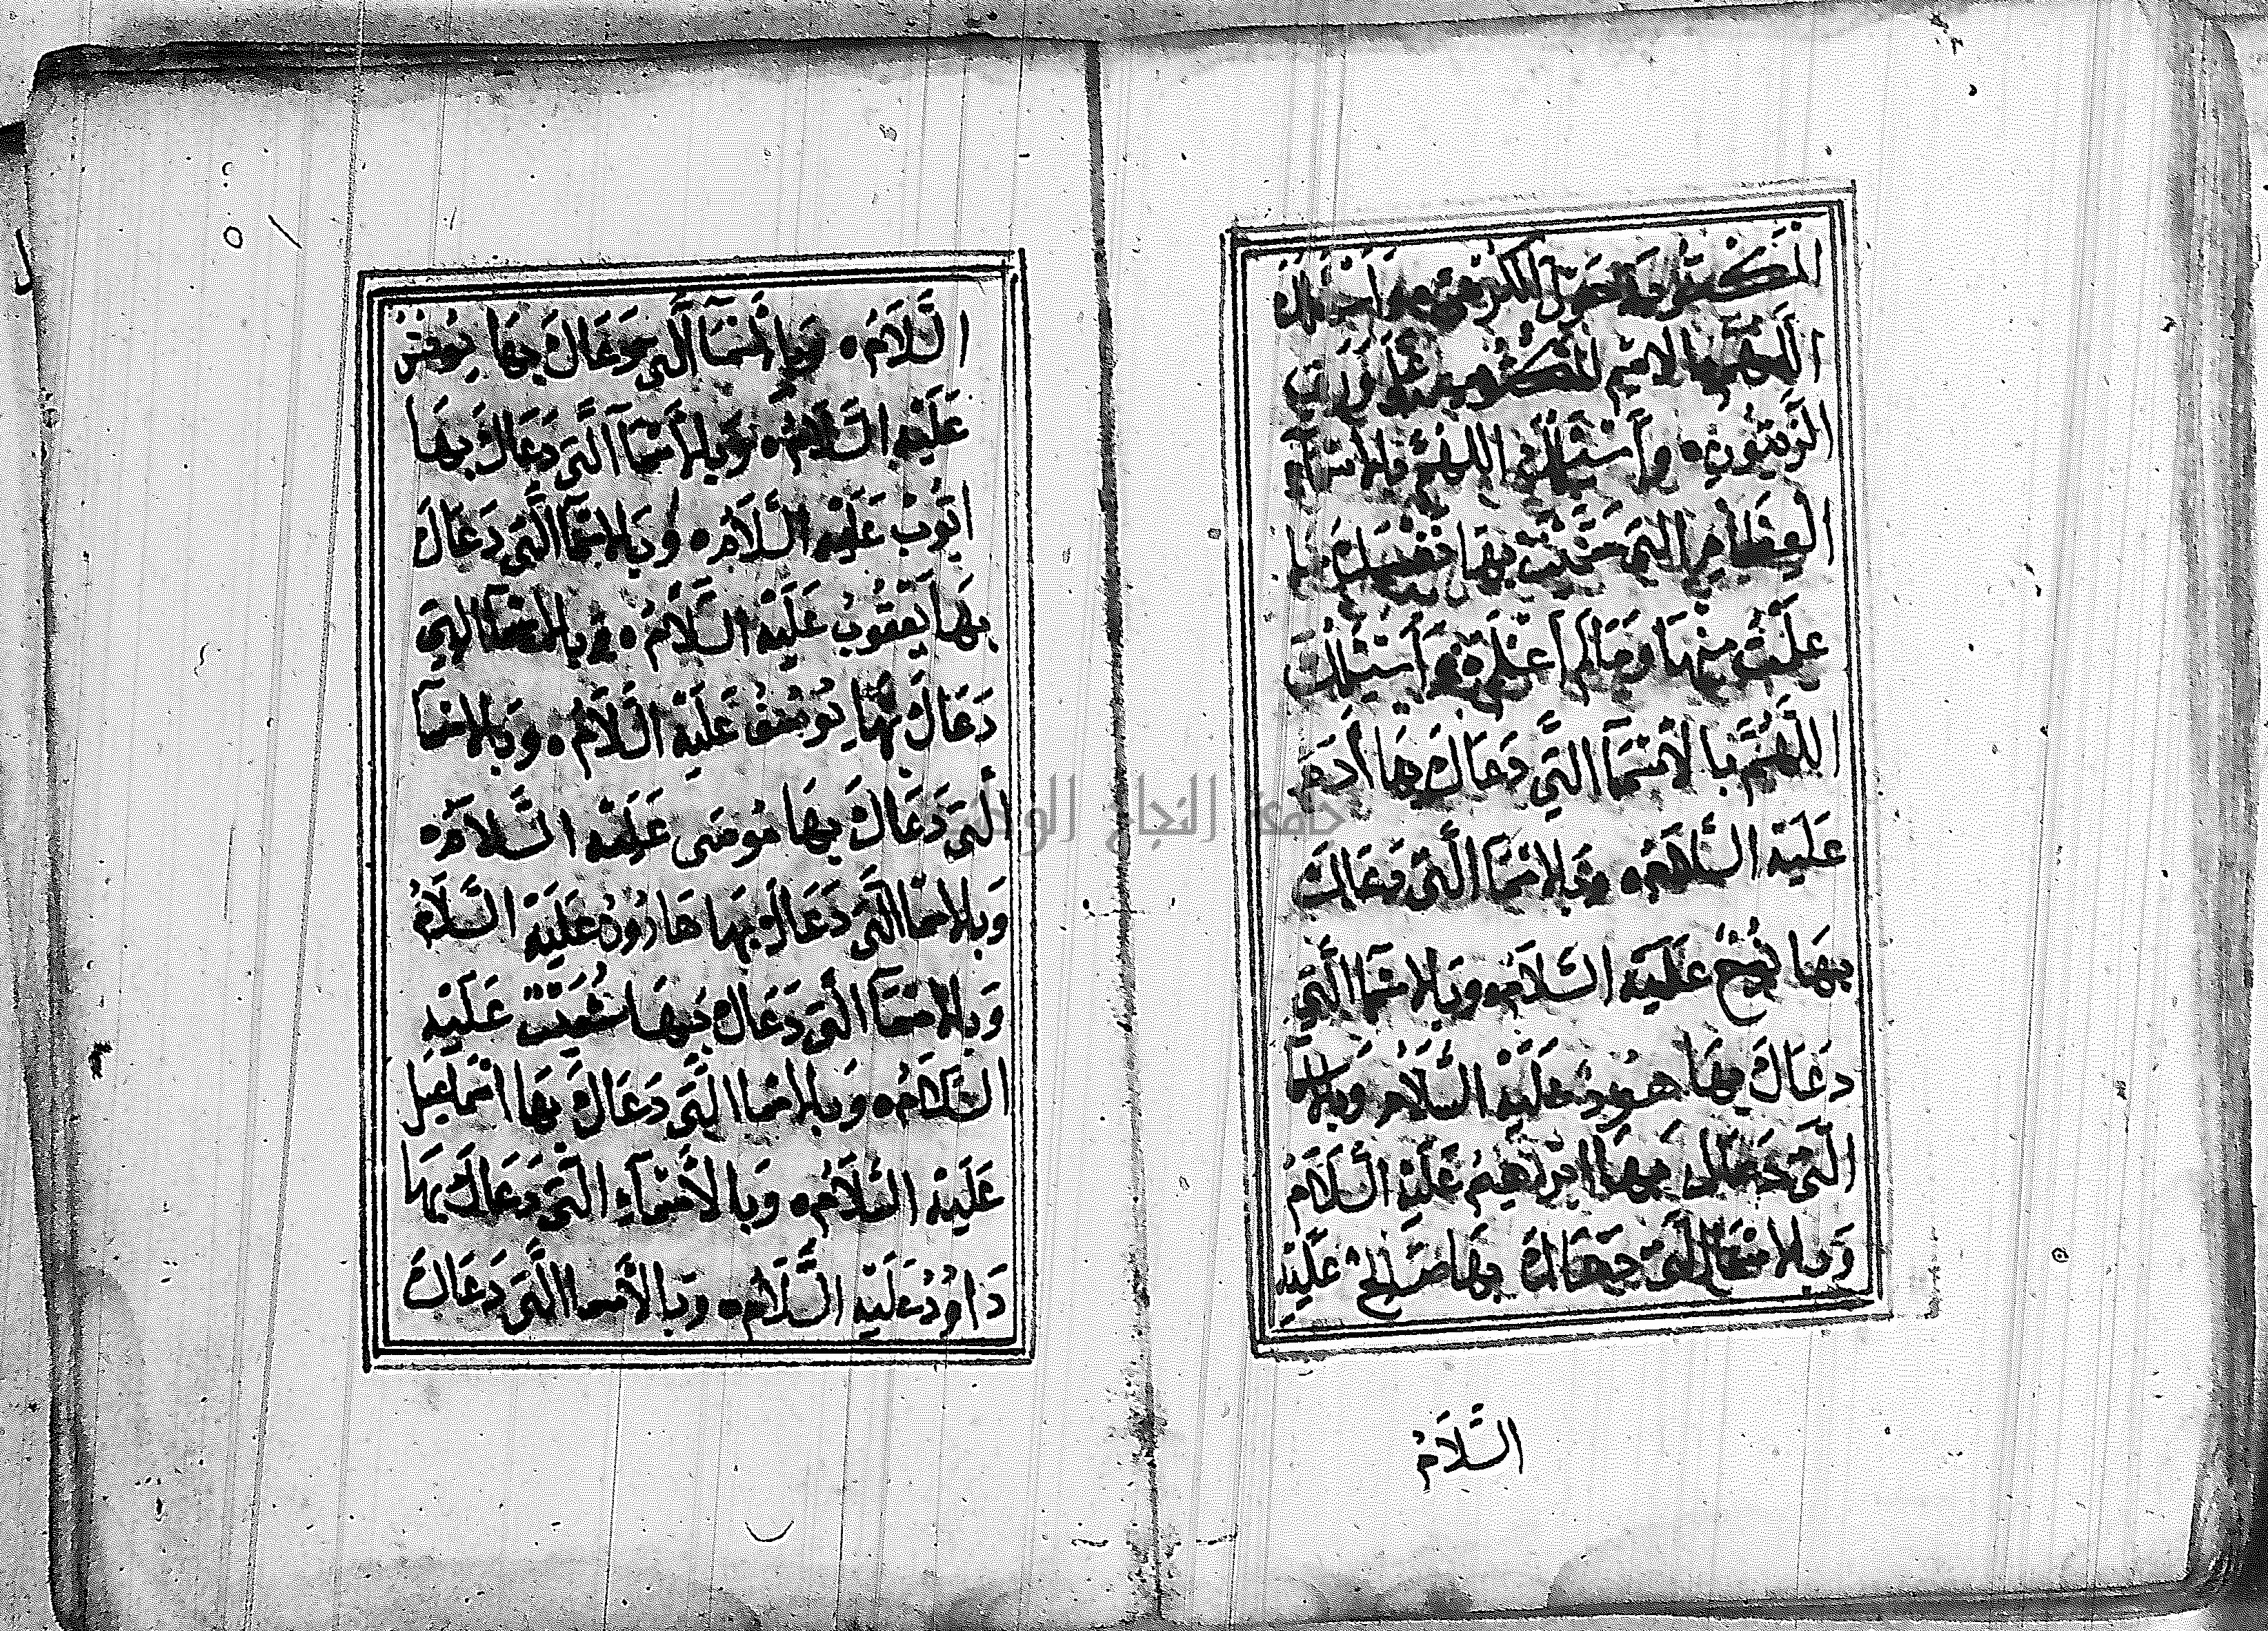 المكتوبة حول الكرسي وأسئلك
اللهم بالاسم المكتوب على ورق
الزيتون ۰ وأسئلك اللهم بالاسماء
العظام التي سميت بها نفسك ما
علمت منها وما لم اعلم و أسئلك
اللهم بالأسمآ التي دعاك بها أدم
عليه السلام ۰ وبالاسمآ التي دعاك
بها نوح عليه السلام ۰ وبالاسمآ التي
دعاك بها هود عليه السلام وبالاسمآ
التي دعاك بها ابرهيم عليه السلام
وبالاسمآ التي دعاك بها صالح عليه
السلام
السلام ۰ وبالأسمآ التي دعاك بها يونس
عليه السلام ۰ وبالأسمآ التي دعاك بها
ايوب عليه السلام ۰ وبالاسمآ التي دعاك
بها يعقوب عليه السلام ۰ وبالاسمآ التي
دعاك بها يوسف عليه السلام ۰ وبالاسمآ
التي دعاك بها موسى عليه السلام ۰
وبالاسمآ التي دعاك بها هارون عليه السلام
وبالاسمآ التي دعاك بها شعيب عليه
السلام ۰ وبالاسما التي دعاك بها اسماعيل
عليه السلام ۰ وبالأسمآء التي دعاك بها
داود عليه السلام ۰ وبالأسما التي دعاك
جامعة النجاح الوطنية